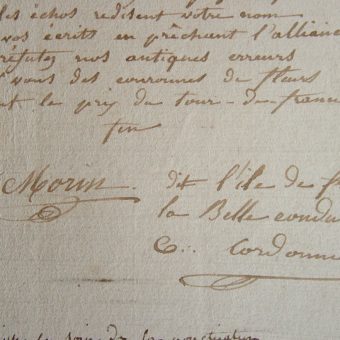 les échos redisent votre nom
vos écrits en prêchent l'allian
réfutez nos antiques erreurs
vous des couronnes de fleurs
le prix du tour-de-france
fin
Morin. dit l'ile de f
la Belle condu
C∴ Cordonn